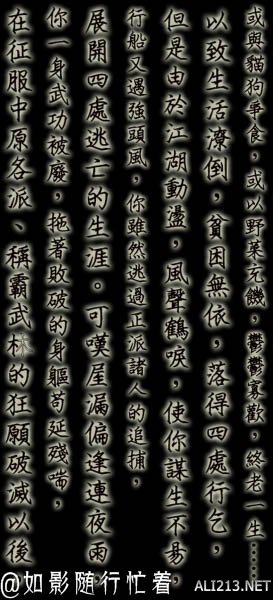 在征服中原各派、稱霸武林的狂願破滅以後
你一身武功被廢，拖著敗破的身軀苟延殘喘，
展開四處逃亡的生涯。可嘆屋漏偏逢連夜雨，
行船又遇強頭風，你雖然逃過正派諸人的追捕，
但是由於江湖動盪，風聲鶴唳，使你謀生不易，
以致生活潦倒，貧困無依，落得四處行乞，
或與貓狗爭食，或以野菜充饑，鬱鬱寡歡，終老一生……
@如影随行忙着
ALI213.NET